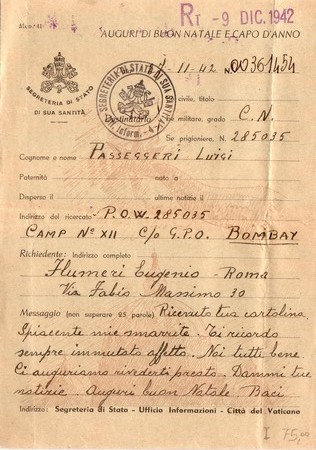 RT - 9 DIC. 1942
AUGURI DI BUON NATALE E CAPO D'ANNO
11-42 No 0361454
SEGRETERIA DI STATO
DI SUA SANTITÀ
SEGRETERIA DI STATO DI SUA SANTITÀ
Uff. Inform. - 4
Destinatario
civile, titolo:
Se militare, grado C.N.
Se prigioniero, N. 285035
Cognome e nome PASSEGGERI LUIGI
Paternità nato a
Disperso il ultime notizie il
Indirizzo del ricercato P.O.W. 285035
CAMP No XII C/o G.P.O. BOMBAY
Richiedente: Indirizzo completo
Flumeri Eugenio - Roma
Via Fabio Massimo 30
Messaggio (non superare 25 parole) Ricevuto tua cartolina
Spiacente mie smarrite. Ti ricordo
sempre immutato affetto. Noi tutti bene.
Ci auguriamo rivederti presto. Dammi tue
notizie. Auguri buon Natale. Baci
Indirizzo: Segreteria di Stato - Ufficio Informazioni - Città del Vaticano
I 75,00